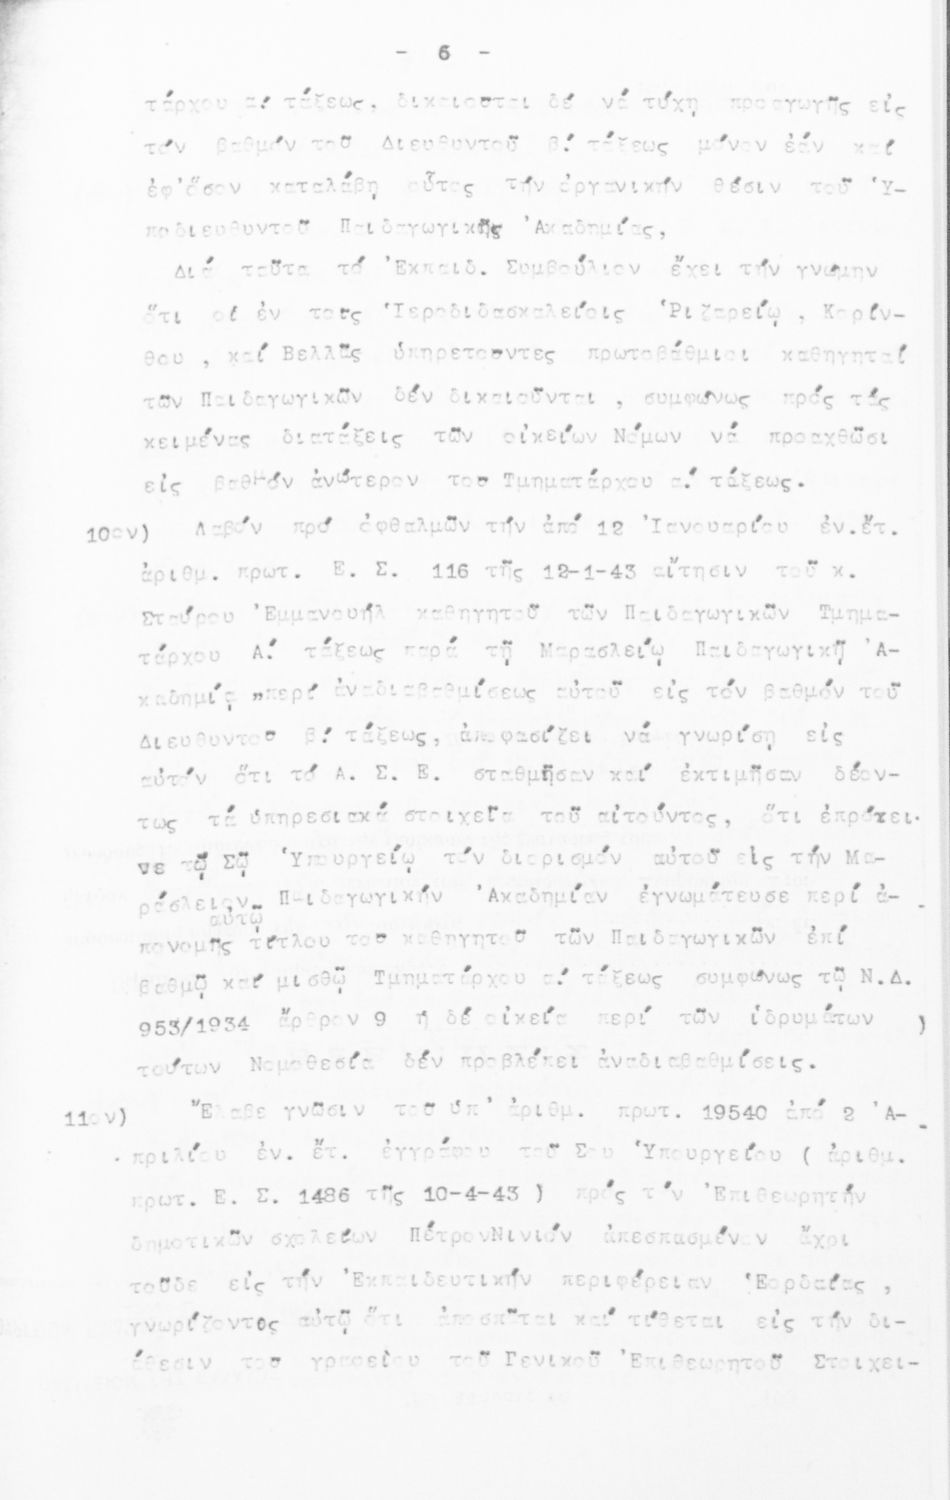 - 6 -
τάρχου α.' τάξεως, δικαιουται δέ νά τύχῃ προαγωγῆς εἰς
τόν βαθμόν τοῦ Διευθυντοῦ β.' τάξεως μόνον ἐάν καί
ἐφ'ὅσον καταλάβῃ οὗτος τήν ὀργανικήν θέσιν τοῦ 'Υ-
ποδιευθυντοῦ Παιδαγωγικῆς 'Ακαδημίας,
Διά ταῦτα τό 'Εκπαιδ. Συμβούλιον ἔχει τήν γνώμην
ὅτι οἱ ἐν τοις 'Ιεροδιδασκαλείοις 'Ριζαρείῳ , Κορίν-
θου , καί Βελλᾶς ὑπηρετουντες πρωτοβάθμιοι καθηγηταί
τῶν Παιδαγωγικῶν δέν δικαιοῦνται , συμφώνως πρός τάς
κειμένας διατάξεις τῶν οἰκείων Νόμων νά προαχθῶσι
εἰς βαθμόν ἀνώτερον του Τμηματάρχου α.' τάξεως.
10ον) Λαβόν πρό ὀφθαλμῶν τήν ἀπό 12 'Ιανουαρίου ἐν.ἔτ.
ἀριθμ. πρωτ. Ε. Σ. 116 τῆς 12-1-43 αἴτησιν τοῦ κ.
Σταύρου 'Εμμανουήλ καθηγητοῦ τῶν Παιδαγωγικῶν Τμημα-
τάρχου Α.' τάξεως παρά τῇ Μαρασλείῳ Παιδαγωγικῇ 'Α-
καδημίᾳ „περί ἀναδιαβαθμίσεως αὐτοῦ εἰς τόν βαθμόν τοῦ
Διευθυντου β.' τάξεως, ἀποφασίζει νά γνωρίσῃ εἰς
αὐτόν ὅτι τό Α. Σ. Ε. σταθμῆσαν καί ἐκτιμῆσαν δέον-
τως τά ὑπηρεσιακά στοιχεῖα τοῦ αἰτοῦντος, ὅτι ἐπρότει-
νε τῷ Σῷ 'Υπουργείῳ τόν διορισμόν αὐτοῦ εἰς τήν Μα-
ράσλειον Παιδαγωγικήν 'Ακαδημίαν ἐγνωμάτευσε περί ἀ-
αὐτῷ
πονομῆς τίτλου του καθηγητοῦ τῶν Παιδαγωγικῶν ἐπί
βαθμῷ καί μισθῷ Τμηματάρχου α.' τάξεως συμφώνως τῷ Ν.Δ.
953/1934 ἄρθρον 9 ἡ δέ οἰκεία περί τῶν ἱδρυμάτων )
τούτων Νομοθεσία δέν προβλέπει ἀναδιαβαθμίσεις.
11ον) "Ελαβε γνῶσιν του ὑπ' ἀριθμ. πρωτ. 19540 ἀπό 2 'Α-
πριλίου ἐν. ἔτ. ἐγγράφου τοῦ Σου 'Υπουργείου ( ἀριθμ.
πρωτ. Ε. Σ. 1486 τῆς 10-4-43 ) πρός τόν 'Επιθεωρητήν
δημοτικῶν σχολείων ΠέτρονΝινιόν ἀπεσπασμένον ἄχρι
τοῦδε εἰς τήν 'Εκπαιδευτικήν περιφέρειαν 'Εορδαίας ,
γνωρίζοντος αὐτῷ ὅτι ἀποσπᾶται καί τίθεται εἰς τήν δι-
άθεσιν του γραφείου τοῦ Γενικοῦ 'Επιθεωρητοῦ Στοιχει-